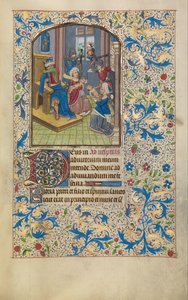 Deus in Ad vesperas
adiutorium meum
intende. Domine ad
adiuuandum me fes
tina
Gloria patri et filio et spiritui sancto
Sicut erat in principio et nunc et s